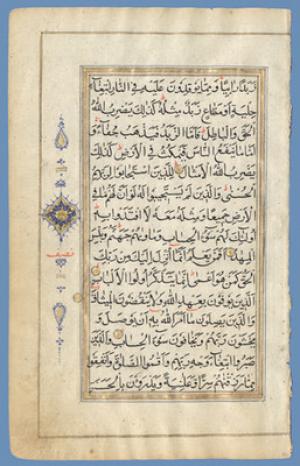 زَبَدًا رَابِيًا وَمِمَّا يُوقِدُونَ عَلَيْهِ فِي النَّارِ ابْتِغَاءَ
حِلْيَةٍ أَوْ مَتَاعٍ زَبَدٌ مِثْلُهُ كَذَلِكَ يَضْرِبُ اللهُ
الْحَقَّ وَالْبَاطِلَ فَأَمَّا الزَّبَدُ فَيَذْهَبُ جُفَاءً وَ
أَمَّا مَا يَنْفَعُ النَّاسَ فَيَمْكُثُ فِي الْأَرْضِ كَذَلِكَ
يَضْرِبُ اللهُ الْأَمْثَالَ لِلَّذِينَ اسْتَجَابُوا لِرَبِّهِمُ
الْحُسْنَى وَالَّذِينَ لَمْ يَسْتَجِيبُوا لَهُ لَوْ أَنَّ لَهُمْ مَا فِي
الْأَرْضِ جَمِيعًا وَمِثْلَهُ مَعَهُ لَافْتَدَوْا بِهِ
أُولَئِكَ لَهُمْ سُوءُ الْحِسَابِ وَمَأْوَيهُمْ جَهَنَّمُ وَبِئْسَ
الْمِهَادُ أَفَمَنْ يَعْلَمُ أَنَّمَا أُنْزِلَ إِلَيْكَ مِنْ رَبِّكَ
الْحَقُّ كَمَنْ هُوَ أَعْمَى إِنَّمَا يَتَذَكَّرُ أُولُوا الْأَلْبَابِ
الَّذِينَ يُوفُونَ بِعَهْدِ اللهِ وَلَا يَنْقُضُونَ الْمِيثَاقَ
وَالَّذِينَ يَصِلُونَ مَا أَمَرَ اللهُ بِهِ أَنْ يُوصَلَ وَ
يَخْشَوْنَ رَبَّهُمْ وَيَخَافُونَ سُوءَ الْحِسَابِ وَالَّذِينَ
صَبَرُوا ابْتِغَاءَ وَجْهِ رَبِّهِمْ وَأَقَامُوا الصَّلَوةَ وَأَنْفَقُوا
مِمَّا رَزَقْنَاهُمْ سِرًّا وَعَلَانِيَةً وَيَدْرَؤُنَ بِالْحَسَنَةِ